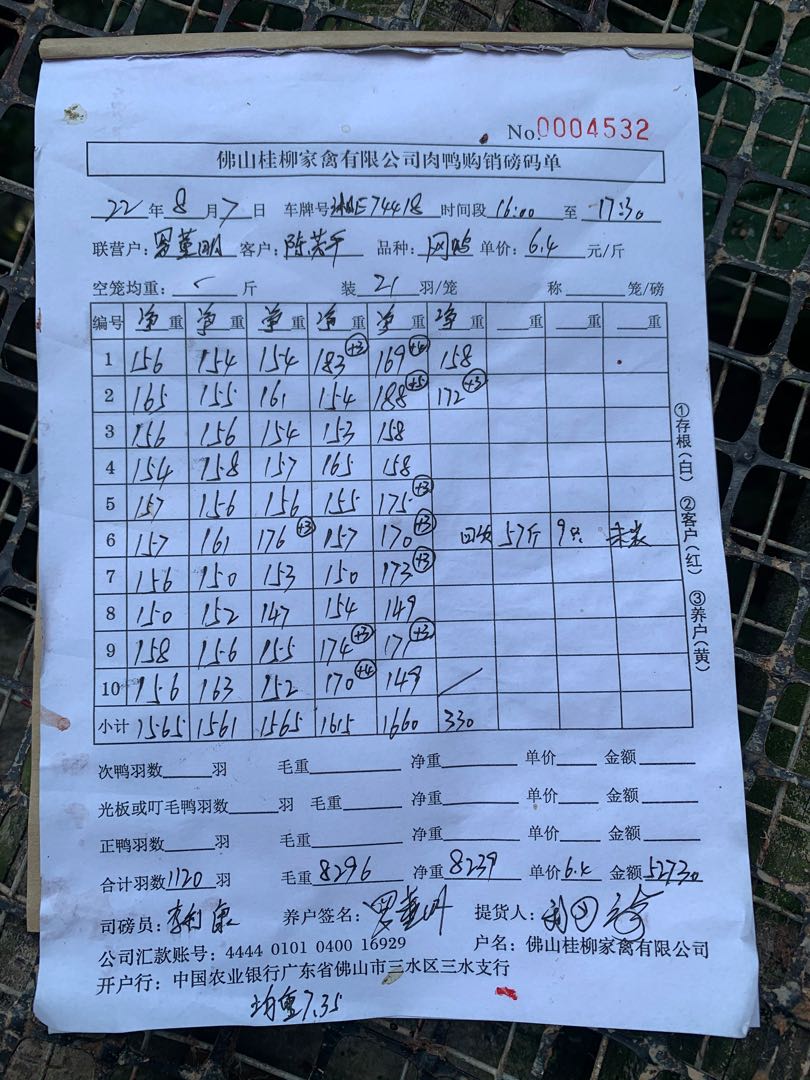 No.0004532
佛山桂柳家禽有限公司肉鸭购销磅码单
22年8月7日 车牌号E74418 时间段16:00至17:30
联营户:罗董明 客户:陈 品种: 单价:6.4元/斤
空笼均重: 斤 装21羽/笼 称 笼/磅
编号 净重 净重 净重 净重 净重 净重 重 重 重
1 156 154 154 183+3 169+4 158
2 165 155 161 154 188+5 172+3
3 156 156 154 153 158
4 154 158 157 165 158
5 157 156 156 155 175+3
6 157 161 176+3 157 170+3 回收 57斤 9只 未装
7 156 150 153 150 173+3
8 150 152 147 154 149
9 158 156 155 174+3 171+3
10 156 163 152 170+4 149
小计 1565 1561 1565 1615 1660 330
①存根(白) ②客户(红) ③养户(黄)
次鸭羽数 羽 毛重 净重 单价 金额
光板或叮毛鸭羽数 羽 毛重 净重 单价 金额
正鸭羽数 羽 毛重 净重 单价 金额
合计羽数1120羽 毛重8296 净重8239 单价6.4 金额52730
司磅员:李 康 养户签名:罗董明 提货人:
公司汇款账号:4444 0101 0400 16929 户名:佛山桂柳家禽有限公司
开户行:中国农业银行广东省佛山市三水区三水支行
均重7.35